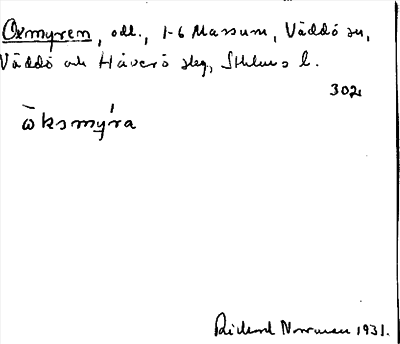 Oxmyren, odl., 1-6 Massum, Väddö sn,
Väddö och Häverö slg, Sthlms l.
302
ω̄ksmýra
Rickard Norrman 1931.